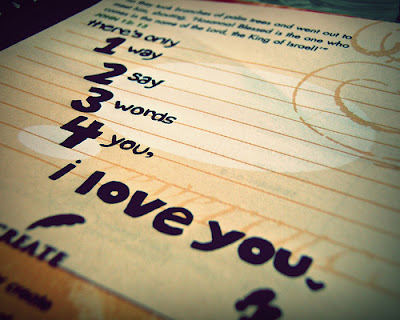 took branches of palm trees and went out to
shouting, "Hosanna! Blessed is the one who
in the name of the Lord, the King of Israel!"
there's only
1 way
2 say
3 words
4 you,
i love you.
CREATE
create